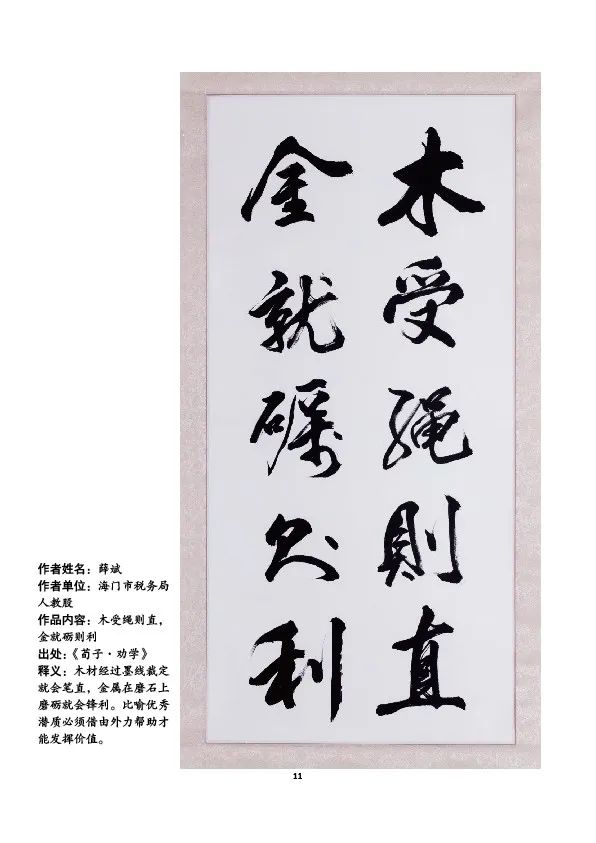 木受繩則直
金就礪则利
作者姓名：薛斌
作者单位：海门市税务局
人教股
作品内容：木受绳则直，
金就砺则利
出处：《荀子·劝学》
释义：木材经过墨线裁定
就会笔直，金属在磨石上
磨砺就会锋利。比喻优秀
潜质必须借由外力帮助才
能发挥价值。
11